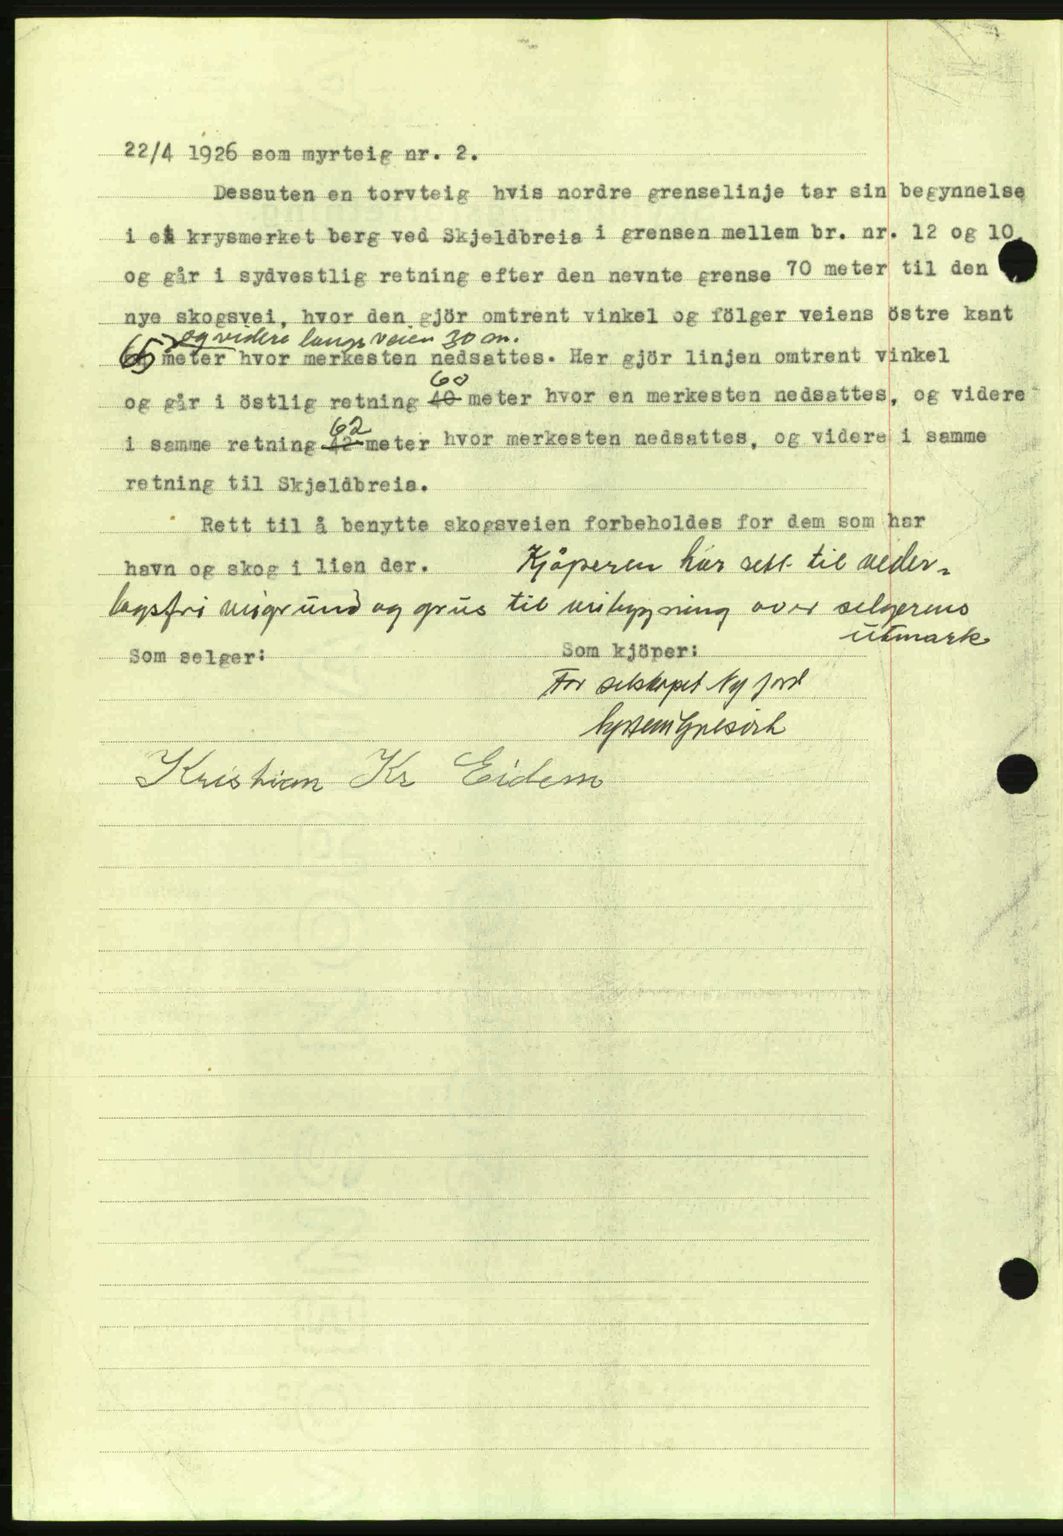 22/4 1926 som myrteig nr. 2.
Dessuten en torvteig hvis nordre grenselinje tar sin begynnelse
i et krysmerket berg ved Skjeldbreia i grensen mellem br. nr. 12 og 10,
og går i sydvestlig retning efter den nevnte grense 70 meter til den
nye skogsvei, hvor den gjör omtrent vinkel og fölger veiens östre kant
og videre langs veien 30 m.
65 meter hvor merkesten nedsattes. Her gjör linjen omtrent vinkel
60
og går i östlig retning 40 meter hvor en merkesten nedsattes, og videre
62
i samme retning 42 meter hvor merkesten nedsattes, og videre i samme
retning til Skjeldbreia.
Rett til å benytte skogsveien forbeholdes for dem som har
havn og skog i lien der. Kjøperen har rett til veder-
lagsfri veigrund og grus til veibygning over selgerens
utmark
Som selger: Som kjöper:
For selskapet Ny jord
Kristian Kr Eidem